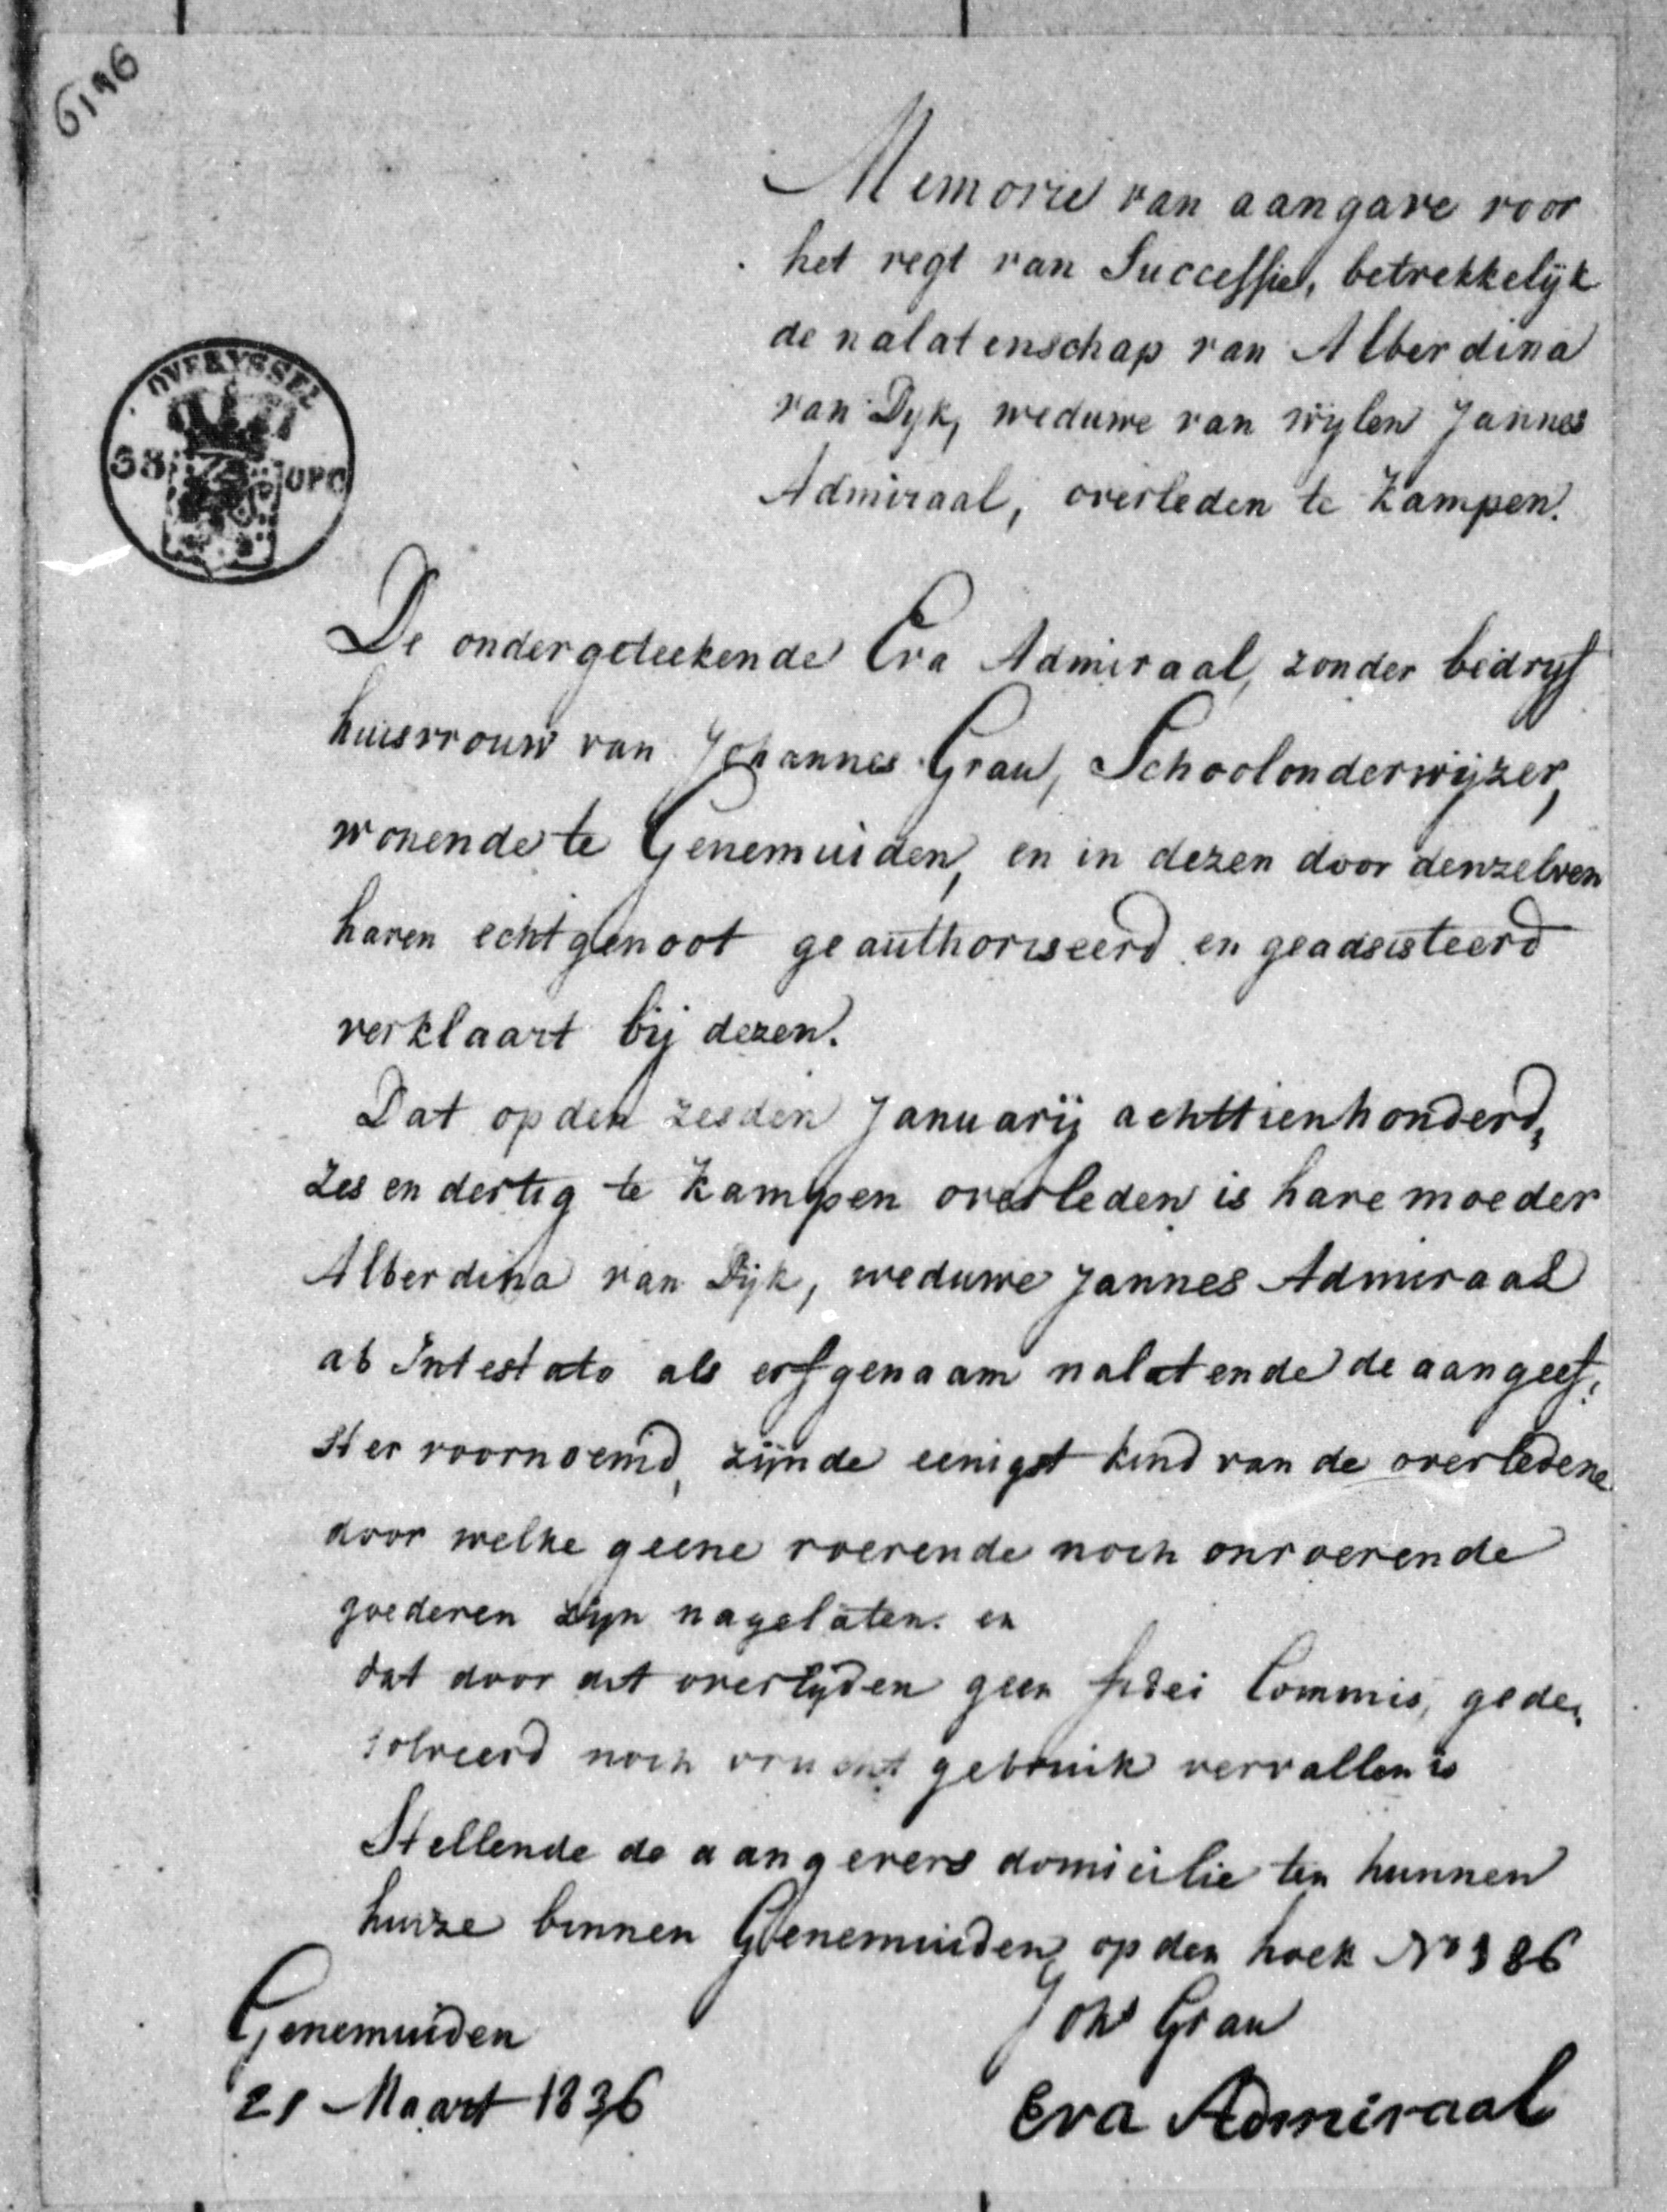 6196
Memorie van aangave voor
het regt van Successie, betrekkelijk
de nalatenschap van Alberdina
van Dyk, weduwe van wylen Jannes
Admiraal, overleden te Kampen.
OVERYSSEL
38 OPC
De ondergeteekende Eva Admiraal, zonder bedryf
huisvrouw van Johannes Grau, Schoolonderwijzer,
wonende te Genemuiden, en in dezen door denzelven
haren echtgenoot geauthoriseerd en geadsisteerd
verklaart bij dezen.
Dat op den zesden Januarij achttienhonderd,
zes en dertig te Kampen overleden is hare moeder
Alberdina van Dijk, weduwe Jannes Admiraal
ab Intestato als erfgenaam nalatende de aangeef,
ster voornoemd, zijnde eenigst kind van de overledene
door welke geene roerende noch onroerende
goederen zyn nagelaten. en
dat door dit overlyden geen fidei Commis, gede,
solveerd noch vrucht gebruik vervallen is
Stellende de aangevers domicilie ten hunnen
huize binnen Genemuiden op den hoek No 386
Genemuiden
21 Maart 1836
Johs Grau
Eva Admiraal